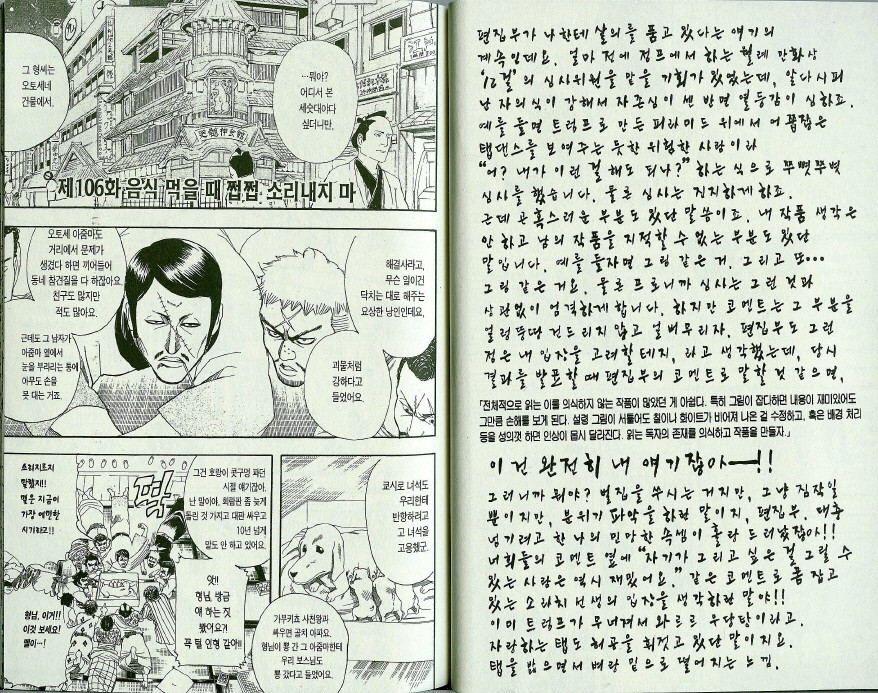 그 형씨는
오토세네
건물에서.
…뭐야?
어디서 본
세숫대야다
싶더니만,
제106화 음식 먹을 때 쩝쩝 소리내지 마
오토세 아줌마도
거리에서 문제가
생겼다 하면 끼어들어
동네 참견질을 다 하잖아요.
친구도 많지만
적도 많아요.
해결사라고,
무슨 일이건
닥치는 대로 해주는
요상한 낭인인데요.
근데도 그 남자가
아줌마 옆에서
눈을 부라리는 통에
아무도 손을
못 대는 거죠.
괴물처럼
강하다고
들었어요.
그건 호랑이 콧구멍 파던
시절 얘기잖아.
난 말이야, 회람판 좀 늦게
돌린 것 가지고 대판 싸우고
10년 넘게
말도 안 하고 있어요.
쿄시로 녀석도
우리한테
반항하려고
고 녀석을
고용했군.
앗!!
형님, 방금
얘 하는 짓
봤어요?!
꼭 털 인형 같아!!
형님, 이거!!
이것 보세요!
벌이…!
가부키쵸 사천왕과
싸우면 골치 아파요.
형님이 뿅 간 그 아줌마한테
우리 보스님도
뿅 갔다고 들었어요.
편집부가 나한테 살의를 품고 있다는 얘기의
계속인데요. 얼마 전에 점프에서 하는 월례 만화상
'12걸'의 심사위원을 맡을 기회가 있었는데, 알다시피
난 자의식이 강해서 자존심이 센 반면 열등감이 심하죠.
예를 들면 트럼프로 만든 피라미드 위에서 어쭙잖은
탭댄스를 보여주는 듯한 위험한 사람이라
"어? 내가 이런 걸 해도 되나?" 하는 식으로 쭈뼛쭈벅
심사를 했습니다. 물론 심사는 진지하게 하죠.
근데 곤혹스러운 부분도 있단 말씀이죠. 내 작품 생각은
안 하고 남의 작품을 지적할 수 없는 부분도 있단
말입니다. 예를 들자면 그림 같은 거. 그리고 또…
그림 같은 거요. 물론 프로니까 심사는 그런 것과
상관없이 엄격하게 합니다. 하지만 코멘트는 그 부분을
얼렁뚱땅 건드리지 않고 얼버무리자. 편집부도 그런
점은 내 입장을 고려할 테지, 라고 생각했는데, 당시
결과를 발표할 때 편집부의 코멘트로 말할 것 같으면,
「전체적으로 읽는 이를 의식하지 않는 작품이 많았던 게 아쉽다. 특히 그림이 잡다하면 내용이 재미있어도
그만큼 손해를 보게 된다. 설령 그림이 서툴어도 칠이나 화이트가 비어져 나온 걸 수정하고, 혹은 배경 처리
등을 성의껏 하면 인상이 몹시 달라진다. 읽는 독자의 존재를 의식하고 작품을 만들자.」
이건 완전히 내 얘기잖아—!!
그러니까 뭐야? 벌집을 쑤시는 거지만, 그냥 짐작일
뿐이지만, 분위기 파악을 하란 말이지, 편집부. 대충
넘기려고 한 나의 민망한 속셈이 홀랑 드러났잖아!!
너희들의 코멘트 옆에 "자기가 그리고 싶은 걸 그릴 수
있는 사람은 역시 재밌어요." 같은 코멘트로 폼 잡고
있는 소라치 선생의 입장을 생각하란 말야!!
이미 트럼프가 무너져서 와르르 우당탕이라고.
자랑하는 탭도 허공을 휘젓고 있단 말이지요.
탭을 밟으면서 벼랑 밑으로 떨어지는 느낌.